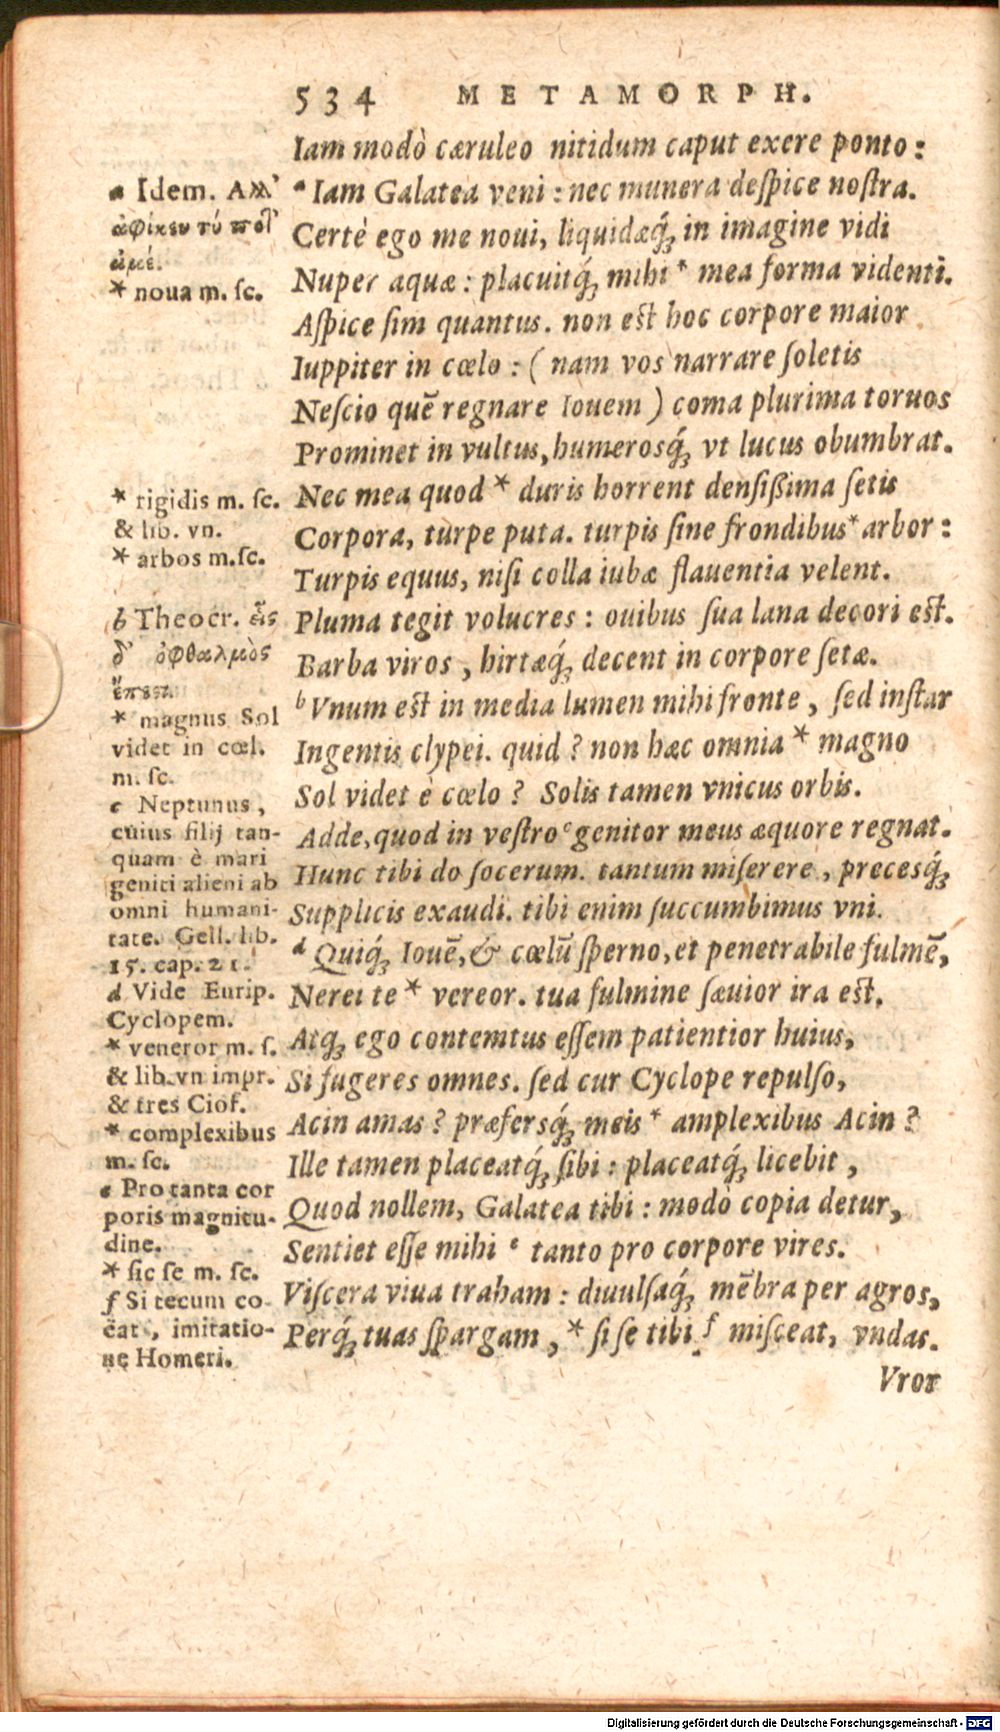 534 METAMORPH.
Iam modò cæruleo nitidum caput exere ponto:
ᵃ Iam Galatea veni: nec munera deſpice noſtra.
Certè ego me noui, liquidæq́ꝫ in imagine vidi
Nuper aquæ: placuitq́ꝫ mihi * mea forma videnti.
Aſpice ſim quantus. non eſt hoc corpore maior
Iuppiter in cœlo: (nam vos narrare ſoletis
Neſcio quē regnare Iouem) coma plurima toruos
Prominet in vultus, humerosq́ꝫ vt lucus obumbrat.
Nec mea quod * duris horrent denſißima ſetis
Corpora, turpe puta. turpis ſine frondibus * arbor:
Turpis equus, niſi colla iubæ flauentia velent.
Pluma tegit volucres: ouibus ſua lana decori eſt.
Barba viros, hirtæq́ꝫ decent in corpore ſetæ.
ᵇ Vnum eſt in media lumen mihi fronte, ſed inſtar
Ingentis clypei. quid? non hæc omnia * magno
Sol videt è cœlo? Solis tamen vnicus orbis.
Adde, quod in veſtro ᶜ genitor meus æquore regnat.
Hunc tibi do ſocerum. tantum miſerere, precesq́ꝫ
Supplicis exaudi. tibi enim ſuccumbimus vni.
ᵈ Quiq́ꝫ Iouē, & cœlū ſperno, et penetrabile fulmē,
Nerei te * vereor. tua fulmine ſæuior ira eſt.
Atqꝫ ego contemtus eſſem patientior huius,
Si fugeres omnes. ſed cur Cyclope repulſo,
Acin amas? præfersq́ꝫ meis * amplexibus Acin?
Ille tamen placeatq́ꝫ ſibi: placeatq́ꝫ licebit,
Quod nollem, Galatea tibi: modò copia detur,
Sentiet eſſe mihi ᵉ tanto pro corpore vires.
Viſcera viua traham: diuulſaq́ꝫ mēbra per agros,
Perq́ꝫ tuas ſpargam, * ſi ſe tibi ᶠ miſceat, vndas.
Vror
a Idem. Ἀλλ'
ἀφίκευ τύ ποτ'
ἀμέ.
* noua m. ſc.
* rigidis m. ſc.
& lib. vn.
* arbos m.ſc.
b Theocr. εἷς
δ' ὀφθαλμὸς
ἔπεστι.
* magnus Sol
videt in cœl.
m. ſc.
c Neptunus,
cuius filij tan-
quam è mari
geniti alieni ab
omni humani-
tate. Gell. lib.
15. cap. 21.
d Vide Eurip.
Cyclopem.
* veneror m. ſ.
& lib. vn impr.
& tres Ciof.
* complexibus
m. ſc.
e Pro tanta cor
poris magnitu-
dine.
* ſic ſe m. ſc.
f Si tecum co-
eat, imitatio-
ne Homeri.
Digitalisierung gefördert durch die Deutsche Forschungsgemeinschaft - DFG